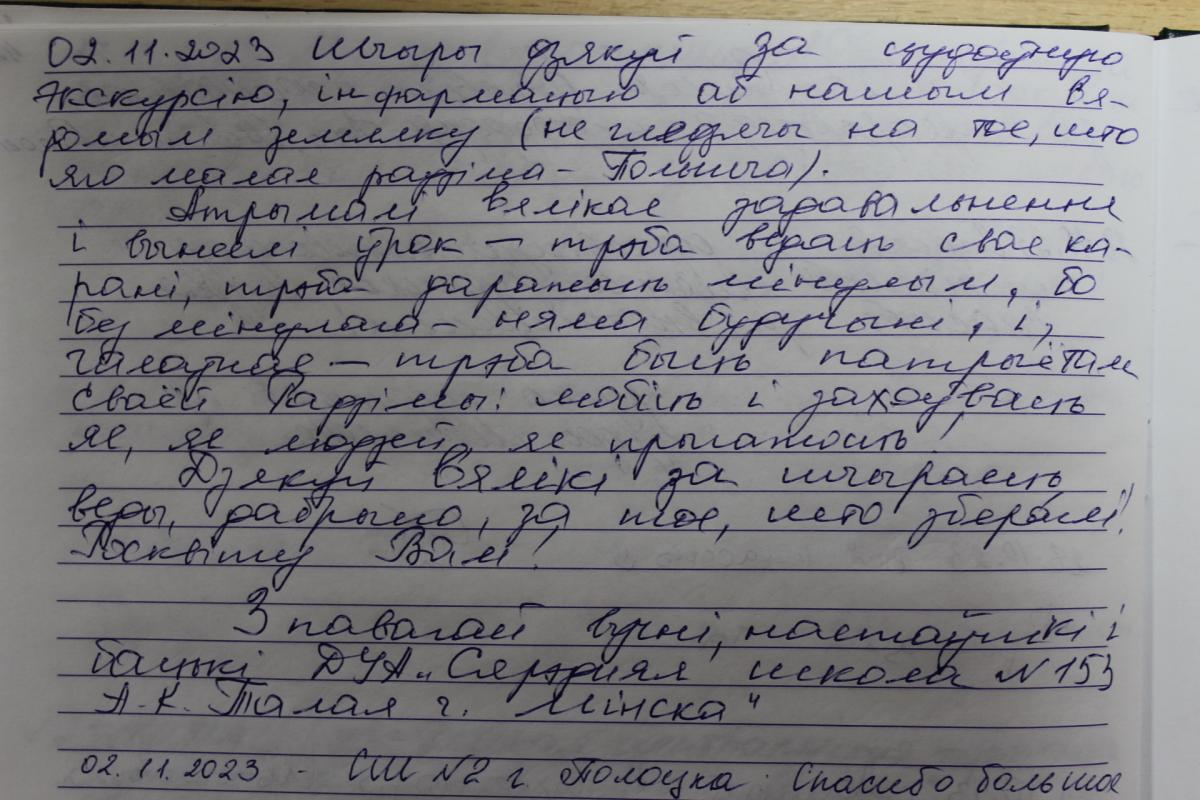 02.11.2023 Шчыры дзякуй за цудоўную
экскурсію, інфармацыю аб нашым вя-
домым земляку (не гледзячы на тое, што
яго малая радзіма - Польшча).
Атрымалі вялікае задавальненне
і вынеслі ўрок - трэба ведаць свае ка-
рані, трэба даражыць мінулым, бо
без мінулага - няма будучыні, і,
галоўнае - трэба быць патрыётам
сваёй Радзімы: любіць і захоўваць
яе, яе людзей, яе прыгажосць!
Дзякуй вялікі за шчырасць
веды, дабрыню, за тое, што збераглі!
Росквіту Вам!
З павагай вучні, настаўнікі і
бацькі ДУА „Сярэдняя школа N 153
А.К. Талая г. Мінска"
02.11.2023 - СШ N2 г. Полоцка. Спасибо большое